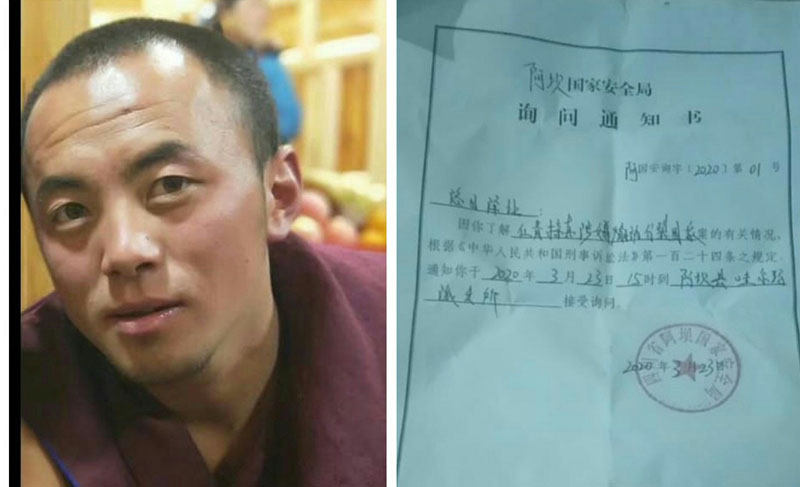 阿坝国家安全局
询问通知书
阿国安询字〔2020〕第01号
因你了解仁青涉嫌煽动分裂国家案的有关情况,
根据《中华人民共和国刑事诉讼法》第一百二十四条之规定,
通知你于2020年3月23日15时到阿坝县哇尔玛
派出所接受询问。
四川省阿坝国家安全局
2020年3月23日